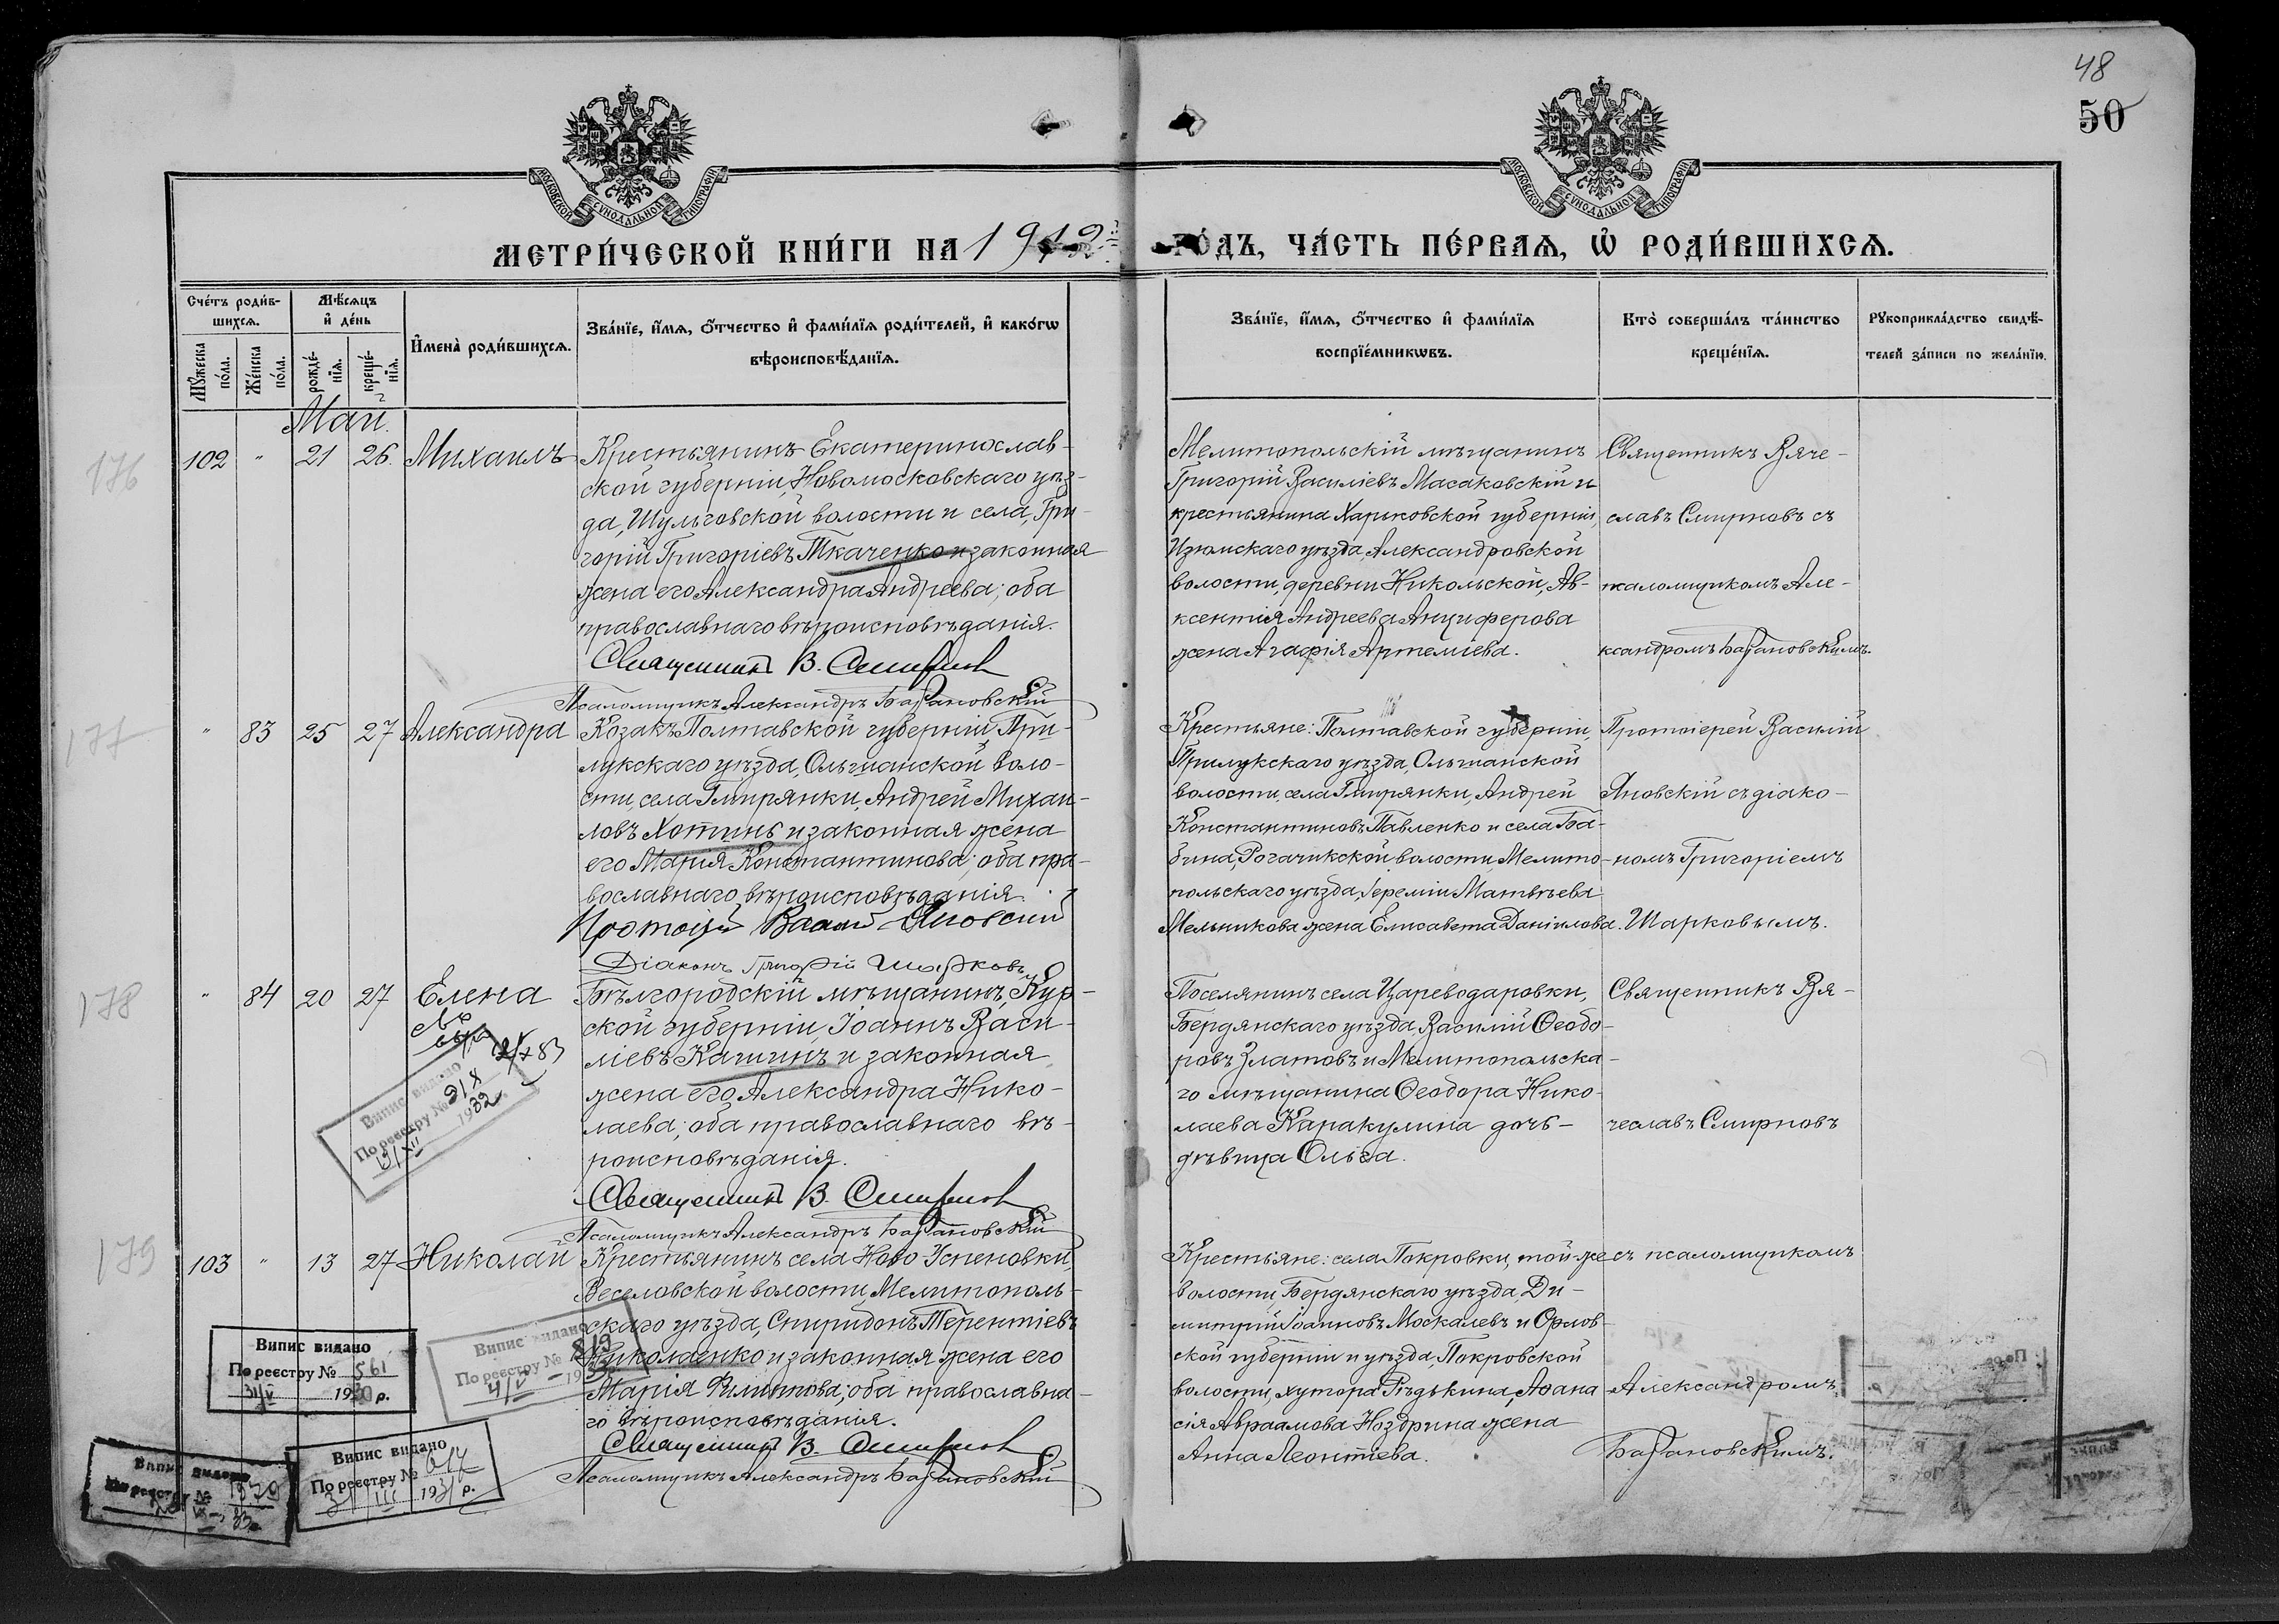 48
50
МОСКОВСКОЙ СѴНОДАЛЬНОЙ ТИПОГРАФІИ
МОСКОВСКОЙ СѴНОДАЛЬНОЙ ТИПОГРАФІИ
МЕТРИ́ЧЕСКОЙ КНИ́ГИ НА 1912й
ГО́ДЪ, ЧА́СТЬ ПЕ́РВАѦ, Ѡ҆ РОДИ́ВШИХСѦ.
Сче́тъ роди́в-
шихсѧ.
Мѣ́сѧцъ
и҆ де́нь
Мꙋ́жеска по́ла.
Же́нска по́ла.
рожде́-нїѧ.
креще́-нїѧ.
И҆мена̀ роди́вшихсѧ.
Зва́нїе, и҆́мѧ, ѻ҆́тчество и҆ фами́лїѧ роди́телей, и҆ како́гѡ
вѣроисповѣ́данїѧ.
Зва́нїе, и҆́мѧ, ѻ҆́тчество и҆ фами́лїѧ
воспрїе́мникѡвъ.
Кто̀ соверша́лъ та́инство
креще́нїѧ.
Рꙋкоприкла́дство свидѣ́-
телей за́писи по жела́нїю.
Май.
176
102 " 21 26 Михаилъ
Крестьянинъ Екатеринослав-
ской губерніи, Новомосковскаго уѣз-
да, Шульговской волости и села, Гри-
горій Григоріевъ Ткаченко и законная
жена его Александра Андреева; оба
православнаго вѣроисповѣданія.
Священникъ В. Смирновъ
Псаломщикъ Александръ Барановскій
Мелитопольскій мѣщанинъ
Григорій Василіевъ Масаковскій и
крестьянина Харьковской губерніи,
Изюмскаго уѣзда, Александровской
волости, деревни Никольской, Ав-
ксентія Андреева Анциферова
жена Агафія Артеміева.
Священникъ Вяче-
славъ Смирновъ съ
псаломщикомъ Але-
ксандромъ Барановскимъ.
177
" 83 25 27 Александра
Козакъ Полтавской губерніи, При-
лукскаго уѣзда, Ольшанской воло-
сти, села Гмирянки, Андрей Михаи-
ловъ Хотинь и законная жена
его Марія Константинова; оба пра-
вославнаго вѣроисповѣданія.
Протоіерей Василій Яновский
Діаконъ Григорій Шарковъ
Крестьяне: Полтавской губерніи,
Прилукскаго уѣзда, Ольшанской
волости, села Гмирянки, Андрей
Константиновъ Павленко и села Ба-
бина, Рогачикской волости, Мелито-
польскаго уѣзда, Іереміи Матвѣева
Мельникова жена Елисавета Даніилова.
Протоіерей Василій
Яновскій съ діако-
номъ Григоріемъ
Шарковымъ.
178
" 84 20 27 Елена
Бѣлгородскій мѣщанинъ, Кур-
ской губерніи, Іоаннъ Васи-
ліевъ Кашинъ и законная
жена его Александра Нико-
лаева; оба православнаго вѣ-
роисповѣданія.
Священникъ В. Смирновъ
Псаломщикъ Александръ Барановскій
Поселянинъ села Цареводаровки,
Бердянскаго уѣзда, Василій Ѳеодо-
ровъ Златовъ и Мелитопольска-
го мѣщанина Ѳеодора Нико-
лаева Каракулина дочь-
дѣвица Ольга.
Священникъ Вя-
чеславъ Смирновъ
Випис видано
По реєстру №
1932
179
103 " 13 27 Николай
Крестьянинъ села Ново-Успеновки,
Веселовской волости, Мелитополь-
скаго уѣзда, Спиридонъ Терентіевъ
Николаенко и законная жена его
Марія Филиппова; оба православна-
го вѣроисповѣданія.
Священникъ В. Смирновъ
Псаломщикъ Александръ Барановскій
Крестьяне: села Покровки, той-же
волости, Бердянскаго уѣзда, Ди-
митрій Іоанновъ Москалевъ и Орлов-
ской губерніи и уѣзда, Покровской
волости, хутора Рѣдькина, Аѳана-
сія Авраамова Ноздрина жена
Анна Леонтіева.
съ псаломщикомъ
Александромъ
Барановскимъ.
Випис видано
По реєстру № 561
31/V 1930 р.
Випис видано
По реєстру № 819
4/V 19
Випис видано
По реєстру № 617
3/III 1931 р.
Випис видано
По реєстру № 1379